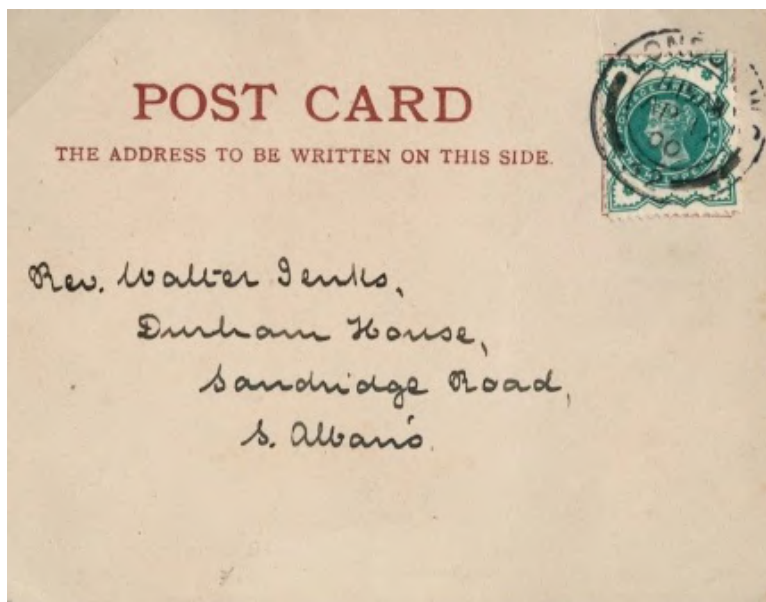 POST CARD
THE ADDRESS TO BE WRITTEN ON THIS SIDE.
Rev. Walter Jenks,
Durham House,
Sandridge Road,
S. Albans.